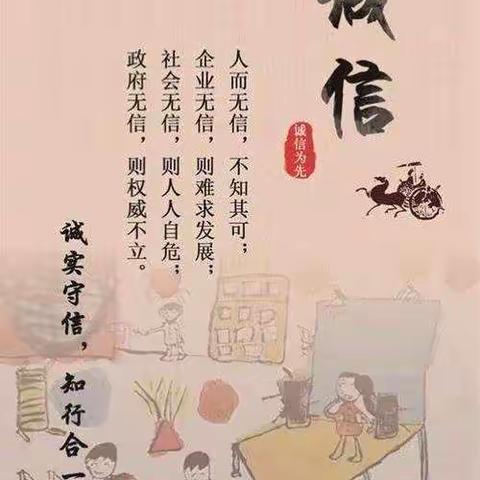 诚信
诚信为先
人而无信，不知其可；
企业无信，则难求发展；
社会无信，则人人自危；
政府无信，则权威不立。
诚实守信，知行合一